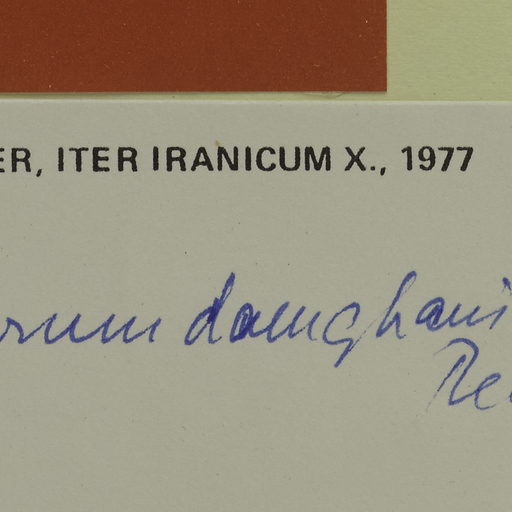 ER, ITER IRANICUM X., 1977
rum damghani
Re